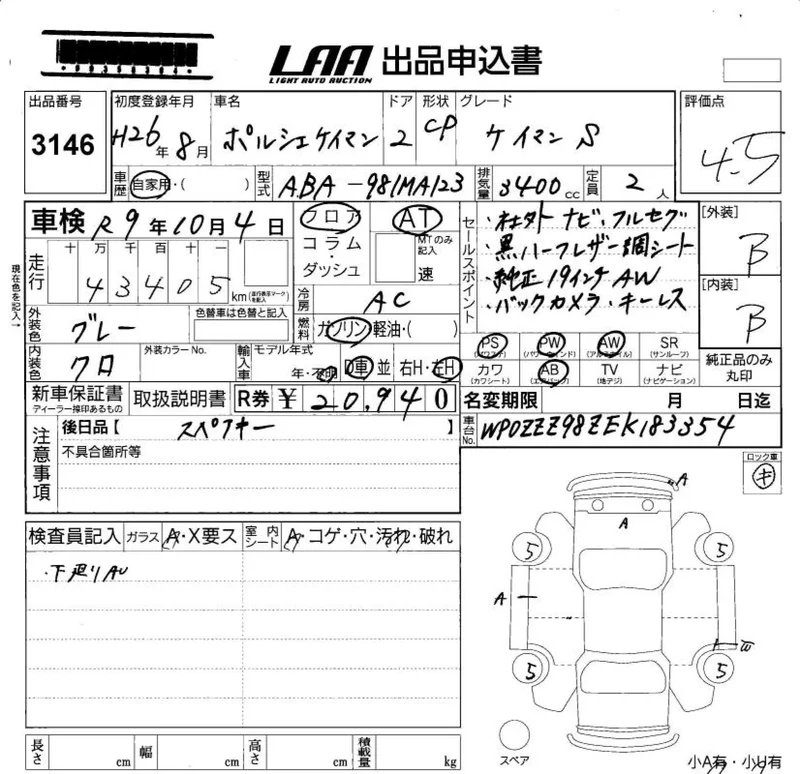 LAA 出品申込書
LIGHT AUTO AUCTION
出品番号 初度登録年月 車名 ドア 形状 グレード 評価点
3146 H26年 8月 ポルシェケイマン 2 CP ケイマン S 4.5
車歴 自家用・( ) 型式 ABA-981MA123 排気量 3400cc 定員 2人
車検 R9年10月4日 フロア AT
コラム・ダッシュ MTのみ記入 速
セールスポイント
・社外ナビ・フルセグ
・黒ハーフレザー調シート
・純正19インチAW
・バックカメラ・キーレス
[外装] B
[内装] B
現在色を記入→
走行 十 万 千 百 十 一
43405 km (走行表示マークを記入)
冷房 AC
外装色 グレー 色替車は色替と記入
燃料 ガソリン・軽油・( )
内装色 クロ 外装カラーNo.
輸入車 モデル年式 年・不明 D車 並 右H・左H
PS (パワステ) PW (パワーウィンドウ) AW (アルミホイル) SR (サンルーフ)
カワ (カワシート) AB (エアバック) TV (地デジ) ナビ (ナビゲーション)
純正品のみ丸印
新車保証書 ディーラー捺印あるもの 取扱説明書 R券 ¥20,940
名変期限 月 日迄
車台No. WP0ZZZ98ZEK183354
注意事項 後日品【 スペアキー 】
不具合箇所等
ロック車 キ
検査員記入 ガラス A・X要ス 室内シート A・コゲ・穴・汚れ・破れ
・下廻りAU
A
A
5 5
A
W
5 5
スペア
長さ cm 幅 cm 高さ cm 積載量 kg
小A有・小U有